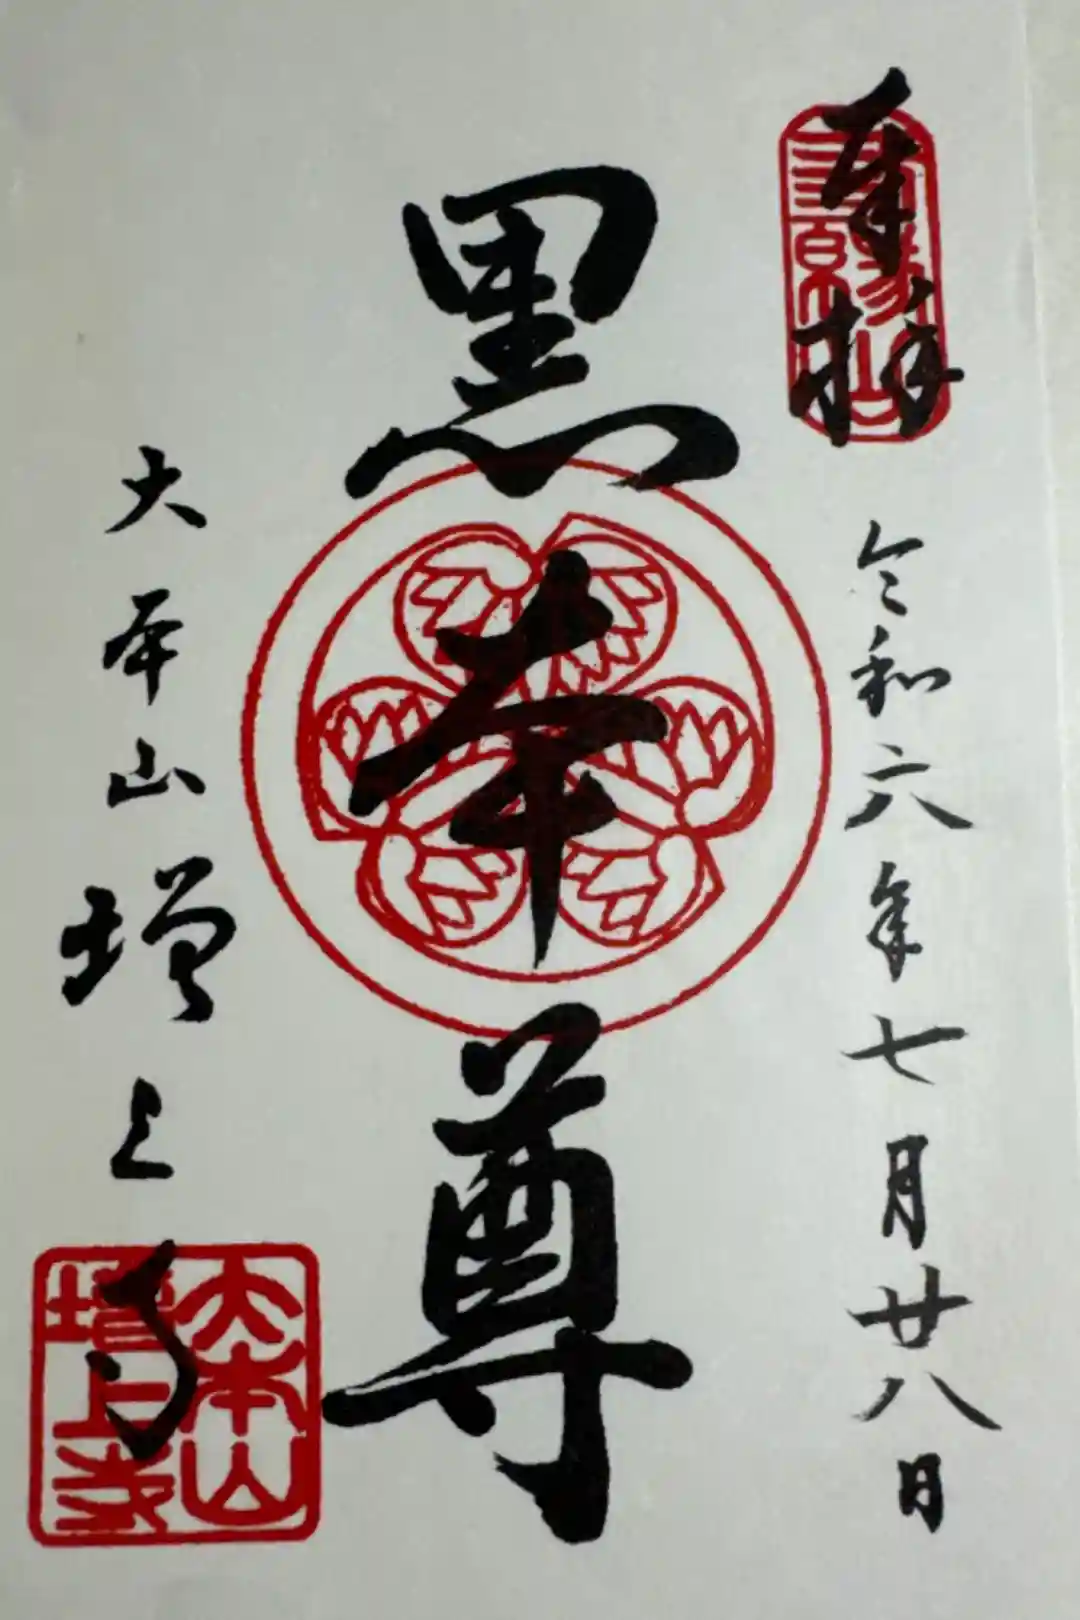 奉拝
三縁山
令和六年七月廿八日
黒本尊
大本山増上寺
大本山
増上寺